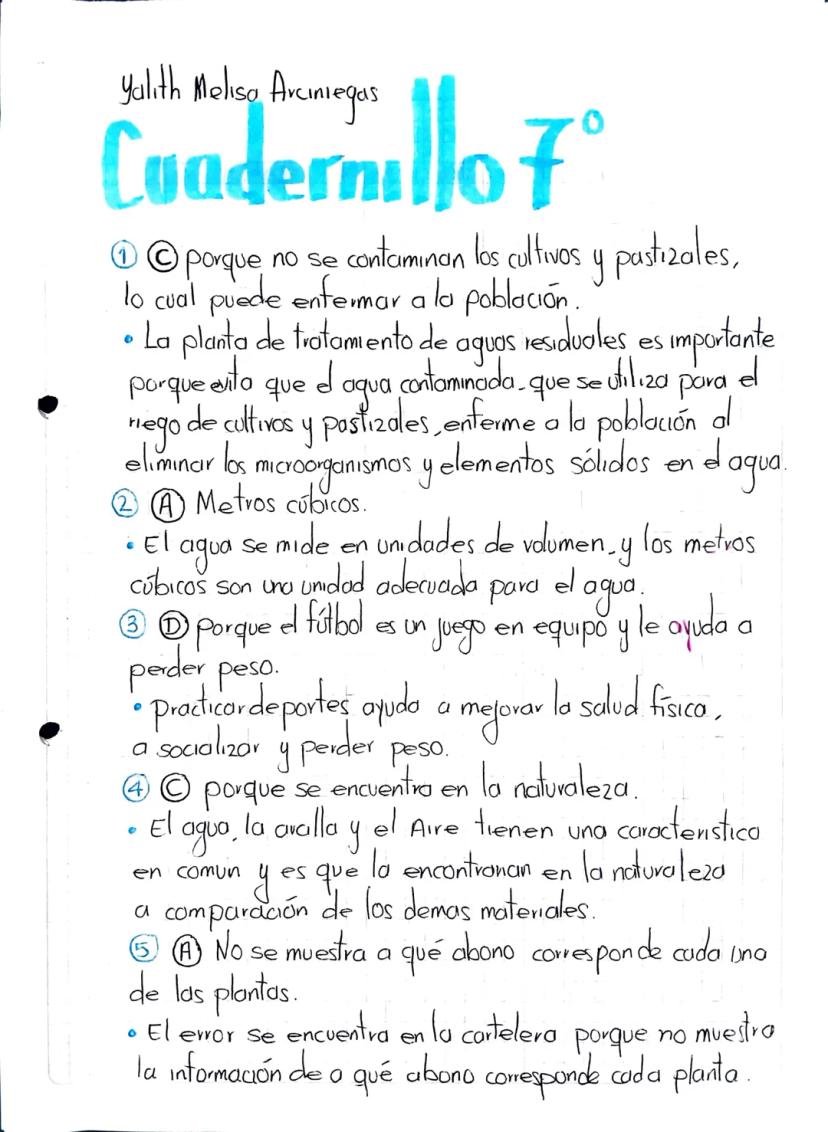 Yalith Melisa Arciniegas
Cuadernillo 7°
1 C porque no se contaminan los cultivos y pastizales,
lo cual puede enfermar a la población.
• La planta de tratamiento de aguas residuales es importante
porque evita que el agua contaminada, que se utiliza para el
riego de cultivos y pastizales, enferme a la población al
eliminar los microorganismos y elementos sólidos en el agua.
2 A Metros cúbicos.
• El agua se mide en unidades de volumen, y los metros
cúbicos son una unidad adecuada para el agua.
3 D porque el fútbol es un juego en equipo y le ayuda a
perder peso.
• practicar deportes ayuda a mejorar la salud física,
a socializar y perder peso.
4 C porque se encuentra en la naturaleza.
• El agua, la arcilla y el Aire tienen una caracteristica
en comun y es que la encontraran en la naturaleza
a comparación de los demas materiales.
5 A No se muestra a qué abono corresponde cada una
de las plantas.
• El error se encuentra en la cartelera porque no muestra
la información de a qué abono corresponde cada planta.